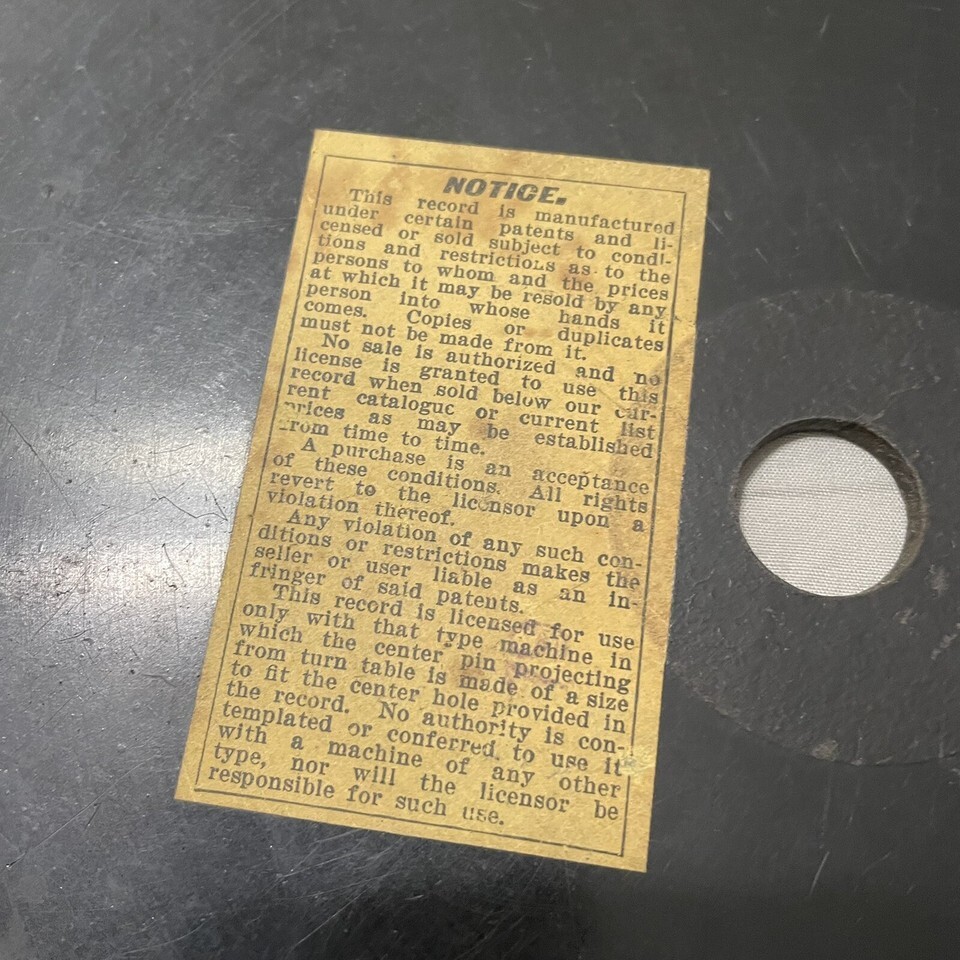 NOTICE.
This record is manufactured
under certain patents and li-
censed or sold subject to condi-
tions and restrictions as to the
persons to whom and the prices
at which it may be resold by any
person into whose hands it
comes. Copies or duplicates
must not be made from it.
No sale is authorized and no
license is granted to use this
record when sold below our cur-
rent catalogue or current list
prices as may be established
from time to time.
A purchase is an acceptance
of these conditions. All rights
revert to the licensor upon a
violation thereof.
Any violation of any such con-
ditions or restrictions makes the
seller or user liable as an in-
fringer of said patents.
This record is licensed for use
only with that type machine in
which the center pin projecting
from turn table is made of a size
to fit the center hole provided in
the record. No authority is con-
templated or conferred to use it
with a machine of any other
type, nor will the licensor be
responsible for such use.